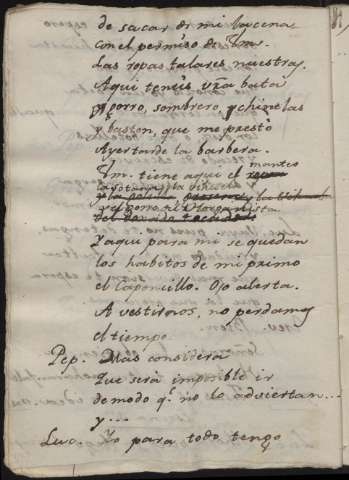 de sacar de mi hacena
con el permiso de Vms.
Las ropas talares nuestras.
Aqui teneis vra bata
y gorro, sombrero, y chinelas
y baston, que me prestó
Ayer tarde la barbera.
Vm. tiene aqui el manteo
la sotana,
y el gorro
Y aqui para mi se quedan
los habitos de mi primo
el Caponcillo. Ojo alerta.
A vestirnos, no perdamos
el tiempo.
Pep. Mas considera
Que será imposible ir
de modo q.e no lo adviertan...
y...
Luc. Yo para todo tengo